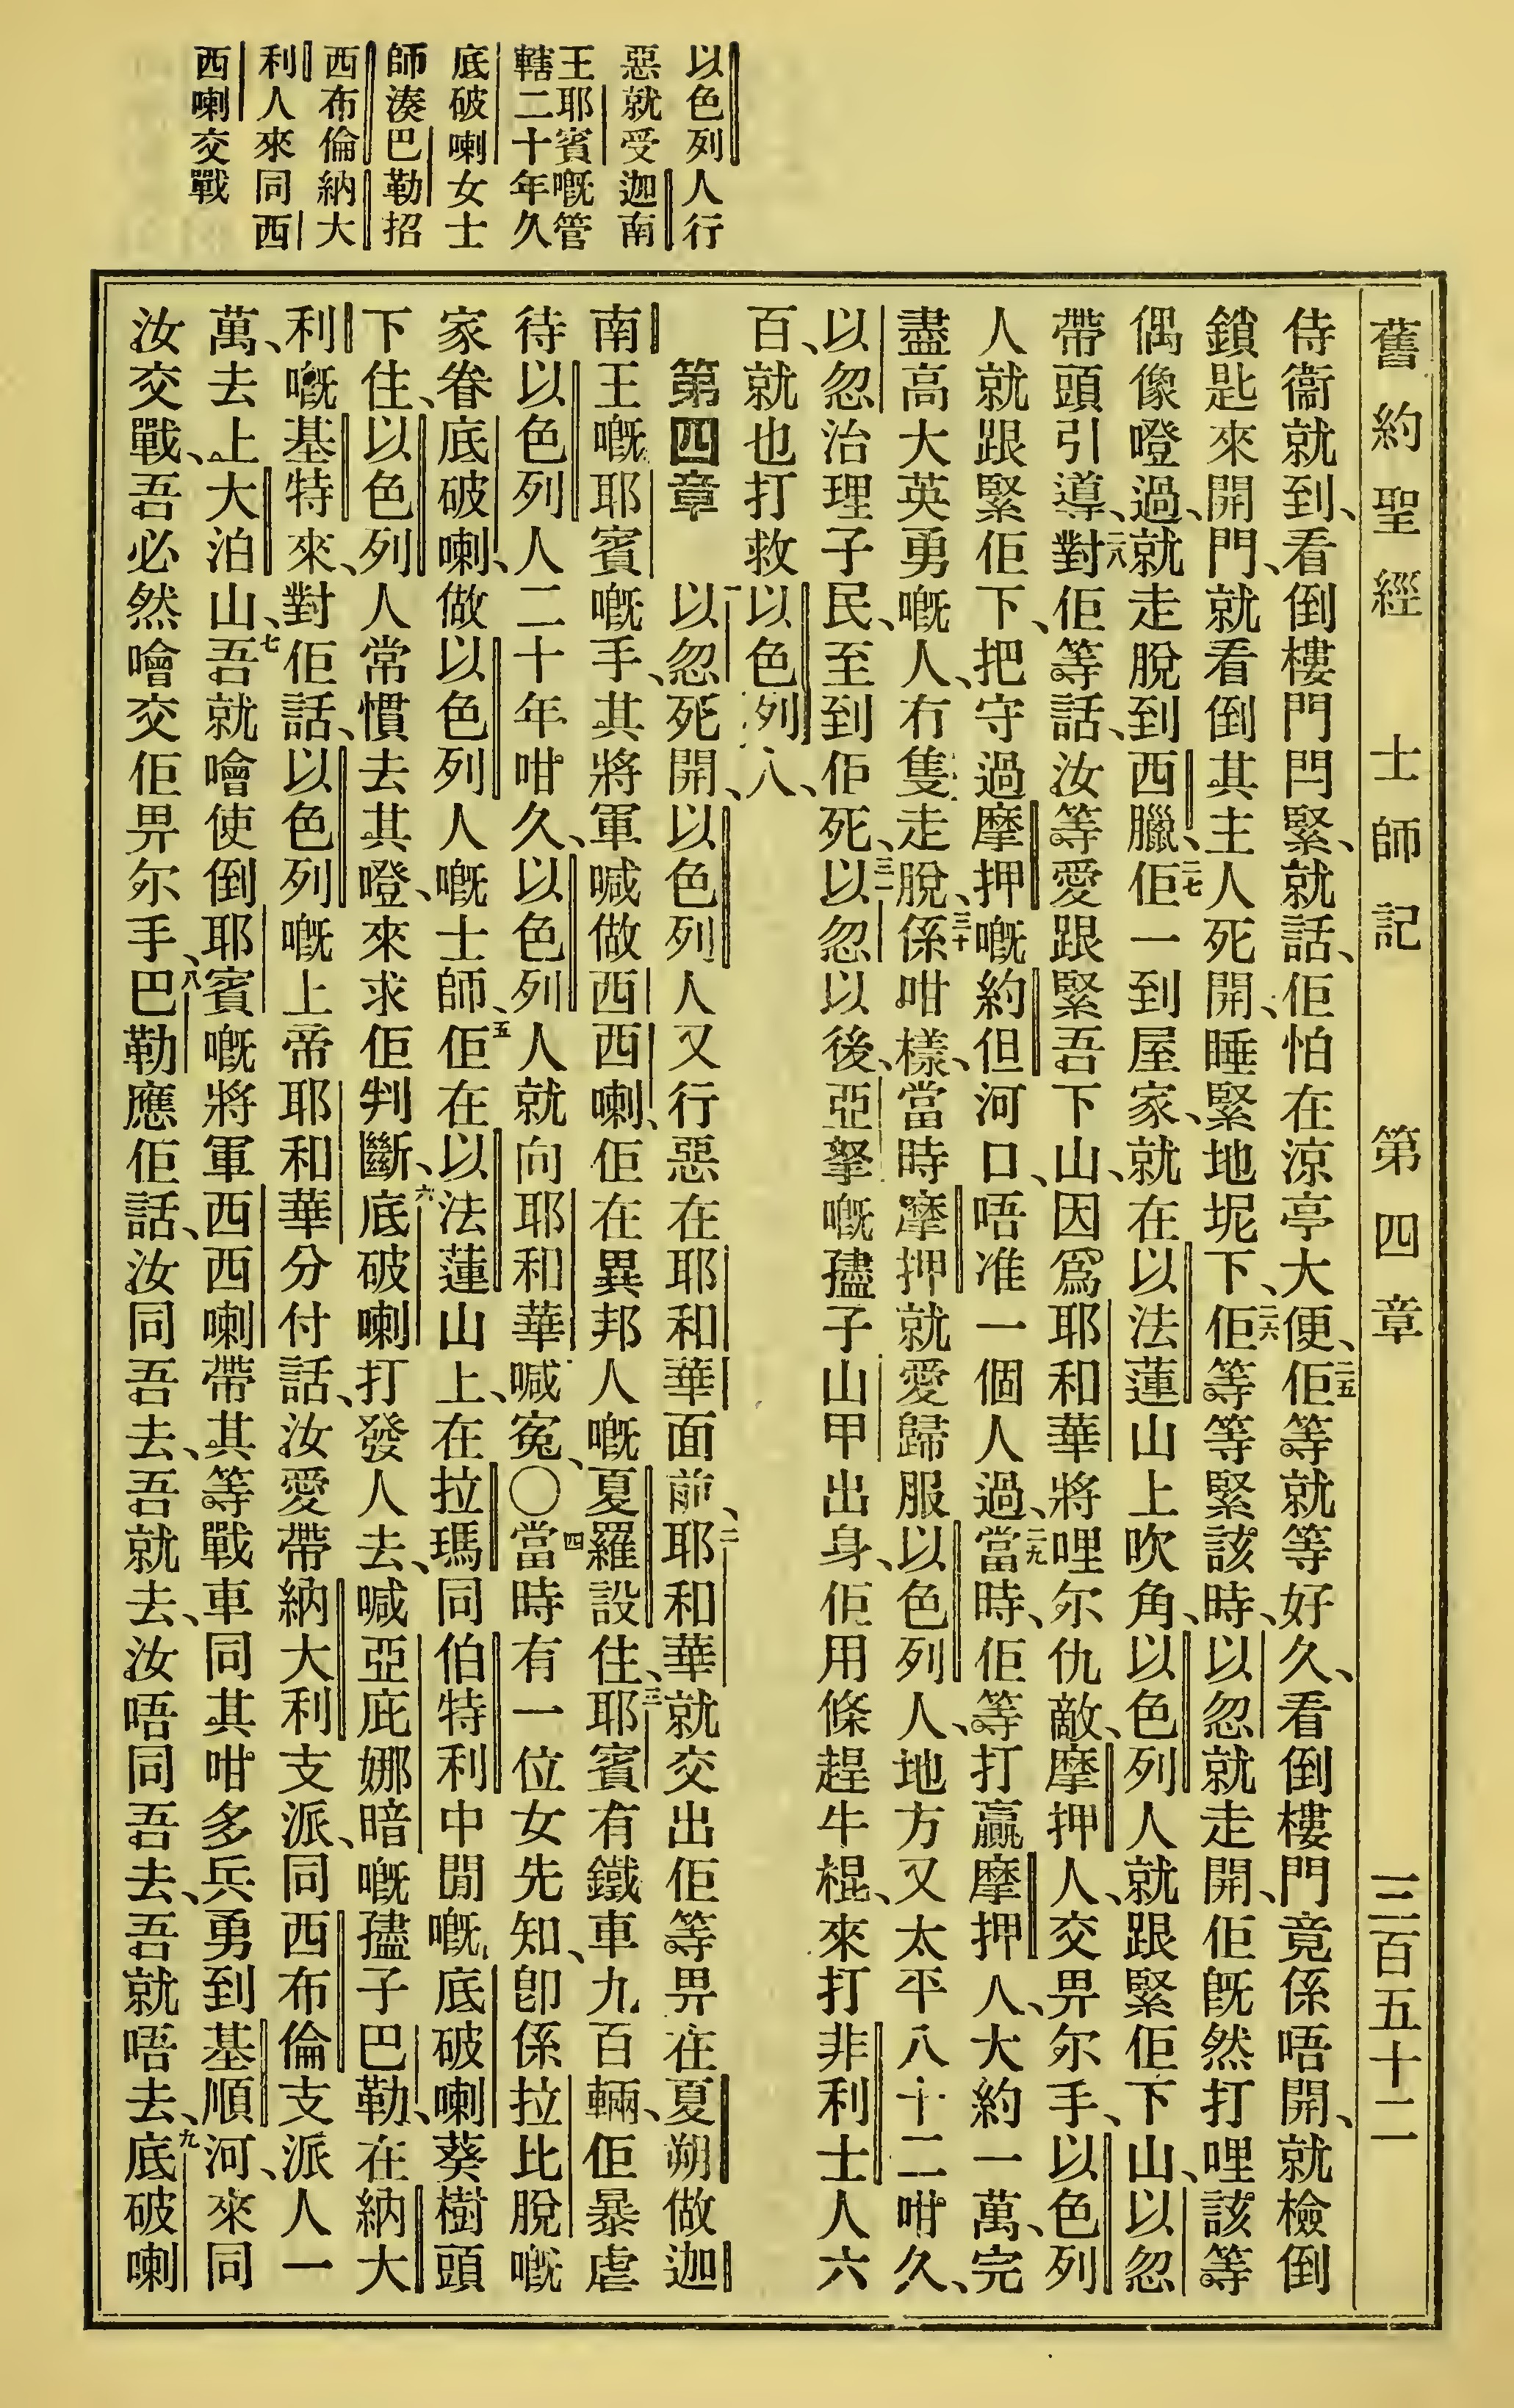 以色列人行
惡就受迦南
王耶賓嘅管
轄二十年久
底破喇女士
師湊巴勒招
西布倫納大
利人來同西
西喇交戰
舊約聖經 士師記 第四章 三百五十二
侍衞就到、看倒樓門閂緊、就話、佢怕在涼亭大便、二五佢等就等好久、看倒樓門竟係唔開、就檢倒
鎖匙來開門、就看倒其主人死開、睡緊地坭下、二六佢等等緊該時、以忽就走開、佢旣然打哩該等
偶像嶝過、就走脫到西臘、二七佢一到屋家、就在以法蓮山上吹角、以色列人就跟緊佢下山、以忽
帶頭引導、二八對佢等話、汝等愛跟緊吾下山、因爲耶和華將哩尔仇敵、摩押人、交畀尔手、以色列
人就跟緊佢下、把守過摩押嘅約但河口、唔准一個人過、二九當時、佢等打贏摩押人、大約一萬、完
盡高大英勇嘅人、冇隻走脫、三十係咁樣、當時摩押就愛歸服以色列人、地方又太平八十二咁久、
以忽治理子民、至到佢死、三一以忽以後、亞拏嘅𧋘子山甲出身、佢用條趕牛棍、來打非利士人六
百、就也打救以色列人、
第四章 一以忽死開、以色列人又行惡在耶和華面前、二耶和華就交出佢等畀在夏朔做迦
南王嘅耶賓嘅手、其將軍喊做西西喇、佢在異邦人嘅夏羅設住、三耶賓有鐵車九百輛、佢暴虐
待以色列人二十年咁久、以色列人就向耶和華喊寃、〇四當時有一位女先知、卽係拉比脫嘅
家眷底破喇、做以色列人嘅士師、五佢在以法蓮山上、在拉瑪同伯特利中間嘅底破喇葵樹頭
下住、以色列人常慣去其嶝、來求佢判斷、六底破喇打發人去、喊亞庇娜暗嘅𧋘子巴勒、在納大
利嘅基特來、對佢話、以色列嘅上帝耶和華分付話、汝愛帶納大利支派、同西布倫支派人一
萬、去上大泊山、七吾就噲使倒耶賓嘅將軍西西喇帶其等戰車同其咁多兵勇到基順河、來同
汝交戰、吾必然噲交佢畀尔手、八巴勒應佢話、汝同吾去、吾就去、汝唔同吾去、吾就唔去、九底破喇